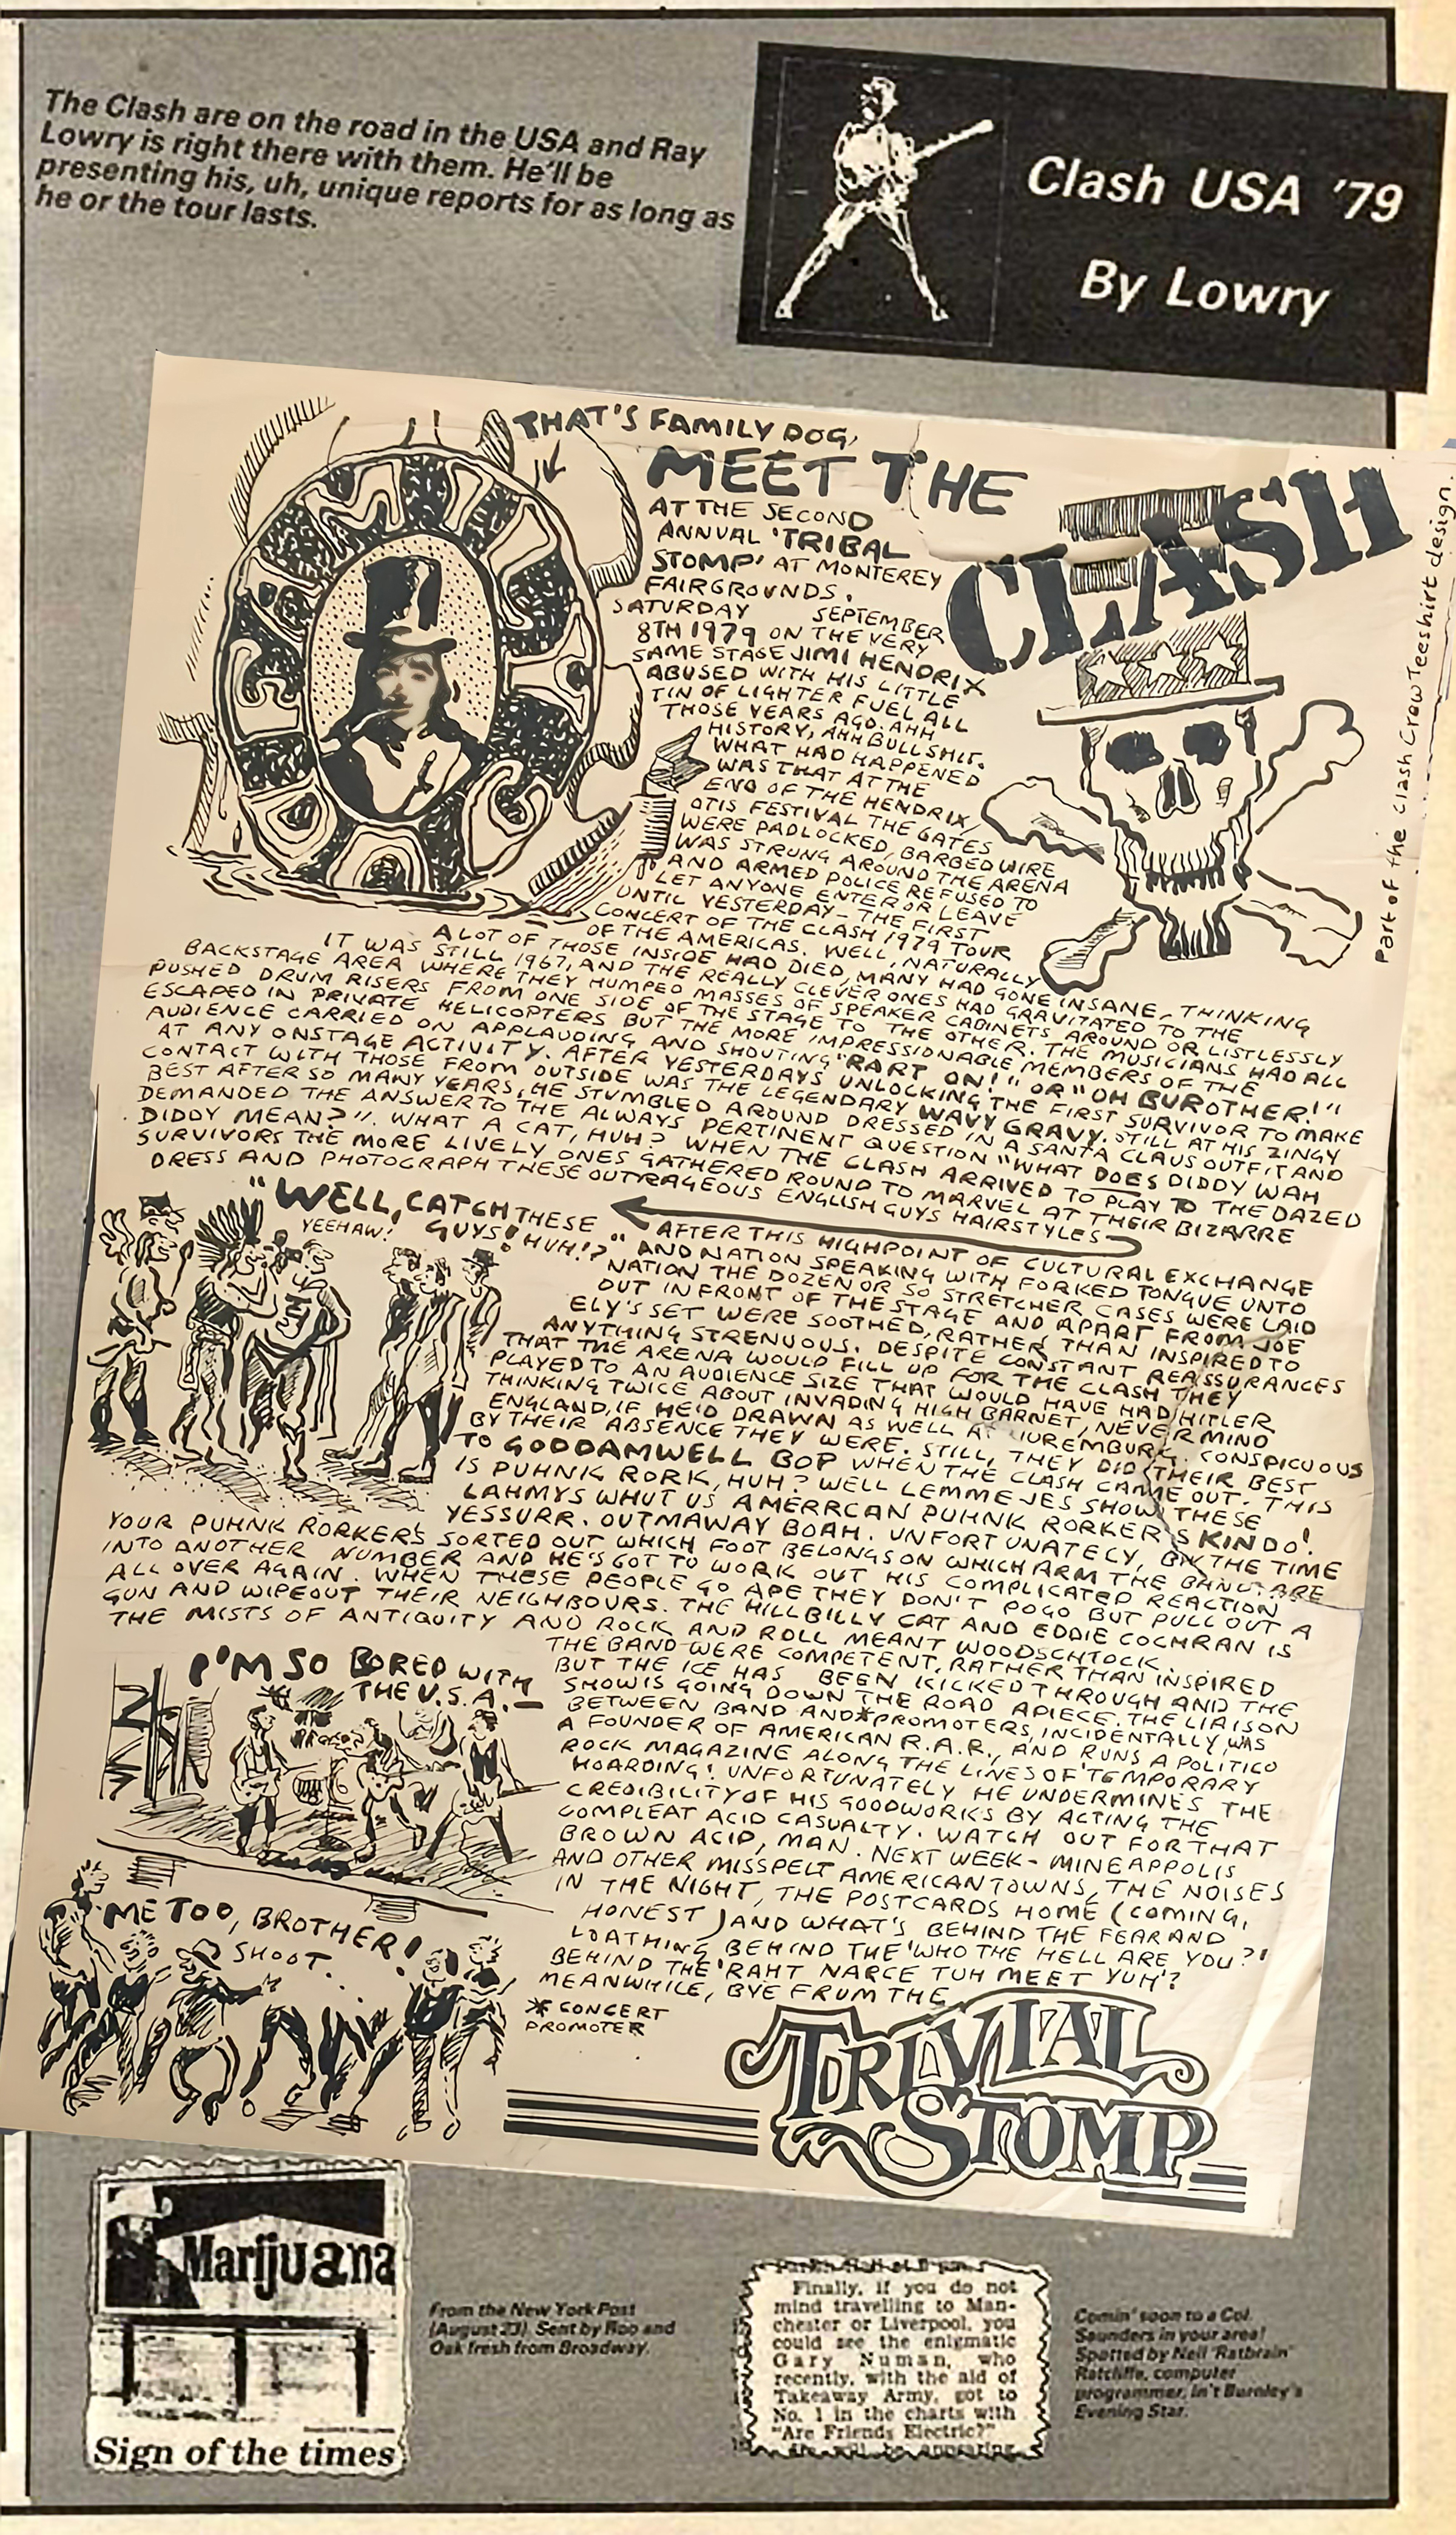 The Clash are on the road in the USA and Ray
Lowry is right there with them. He'll be
presenting his, uh, unique reports for as long as
he or the tour lasts.
Clash USA '79
By Lowry
THAT'S FAMILY DOG,
MEET THE
CLASH
AT THE SECOND
ANNUAL 'TRIBAL
STOMP' AT MONTEREY
FAIRGROUNDS.
SATURDAY SEPTEMBER
8TH 1979 ON THE VERY
SAME STAGE JIMI HENDRIX
ABUSED WITH HIS LITTLE
TIN OF LIGHTER FUEL ALL
THOSE YEARS AGO. AHH
HISTORY, AHH BULLSHIT.
WHAT HAD HAPPENED
WAS THAT AT THE
END OF THE HENDRIX/
OTIS FESTIVAL THE GATES
WERE PADLOCKED, BARBED WIRE
WAS STRUNG AROUND THE ARENA
AND ARMED POLICE REFUSED TO
LET ANYONE ENTER OR LEAVE
UNTIL YESTERDAY - THE FIRST
CONCERT OF THE CLASH 1979 TOUR
OF THE AMERICAS. WELL, NATURALLY
A LOT OF THOSE INSIDE HAD DIED, MANY HAD GONE INSANE, THINKING
IT WAS STILL 1967, AND THE REALLY CLEVER ONES HAD GRAVITATED TO THE
BACKSTAGE AREA WHERE THEY HUMPED MASSES OF SPEAKER CABINETS AROUND OR LISTLESSLY
PUSHED DRUM RISERS FROM ONE SIDE OF THE STAGE TO THE OTHER. THE MUSICIANS HAD ALL
ESCAPED IN PRIVATE HELICOPTERS BUT THE MORE IMPRESSIONABLE MEMBERS OF THE
AUDIENCE CARRIED ON APPLAUDING AND SHOUTING "RART ON!" OR "OH BUROTHER!"
AT ANY ONSTAGE ACTIVITY. AFTER YESTERDAYS UNLOCKING THE FIRST SURVIVOR TO MAKE
CONTACT WITH THOSE FROM OUTSIDE WAS THE LEGENDARY WAVY GRAVY. STILL AT HIS ZINGY
BEST AFTER SO MANY YEARS, HE STUMBLED AROUND DRESSED IN A SANTA CLAUS OUTFIT AND
DEMANDED THE ANSWER TO THE ALWAYS PERTINENT QUESTION "WHAT DOES DIDDY WAH
DIDDY MEAN?". WHAT A CAT, HUH? WHEN THE CLASH ARRIVED TO PLAY TO THE DAZED
SURVIVORS THE MORE LIVELY ONES GATHERED ROUND TO MARVEL AT THEIR BIZARRE
DRESS AND PHOTOGRAPH THESE OUTRAGEOUS ENGLISH GUYS HAIRSTYLES
"WELL, CATCH THESE
GUYS! HUH!?"
YEEHAW!
AFTER THIS HIGHPOINT OF CULTURAL EXCHANGE
AND NATION SPEAKING WITH FORKED TONGUE UNTO
NATION THE DOZEN OR SO STRETCHER CASES WERE LAID
OUT IN FRONT OF THE STAGE AND APART FROM JOE
ELY'S SET WERE SOOTHED, RATHER THAN INSPIRED TO
ANYTHING STRENUOUS. DESPITE CONSTANT REASSURANCES
THAT THE ARENA WOULD FILL UP FOR THE CLASH THEY
PLAYED TO AN AUDIENCE SIZE THAT WOULD HAVE HAD HITLER
THINKING TWICE ABOUT INVADING HIGH BARNET, NEVER MIND
ENGLAND, IF HE'D DRAWN AS WELL AT NUREMBURG. CONSPICUOUS
BY THEIR ABSENCE THEY WERE. STILL, THEY DID THEIR BEST
TO GODDAMWELL BOP WHEN THE CLASH CAME OUT. THIS
IS PUHNK RORK, HUH? WELL LEMME JES SHOW THESE
LAHMYS WHUT US AMERRCAN PUHNK RORKERS KIN DO!
YESSURR. OUTMAWAY BOAH. UNFORTUNATELY, BY THE TIME
YOUR PUHNK RORKER'S SORTED OUT WHICH FOOT BELONGS ON WHICH ARM THE BAND ARE
INTO ANOTHER NUMBER AND HE'S GOT TO WORK OUT HIS COMPLICATED REACTION
ALL OVER AGAIN. WHEN THESE PEOPLE GO APE THEY DON'T POGO BUT PULL OUT A
GUN AND WIPEOUT THEIR NEIGHBOURS. THE HILLBILLY CAT AND EDDIE COCHRAN IS
THE MISTS OF ANTIQUITY AND ROCK AND ROLL MEANT WOODSCHTOCK.
THE BAND WERE COMPETENT, RATHER THAN INSPIRED
BUT THE ICE HAS BEEN KICKED THROUGH AND THE
SHOW IS GOING DOWN THE ROAD APIECE. THE LIAISON
BETWEEN BAND AND *PROMOTERS, INCIDENTALLY, WAS
A FOUNDER OF AMERICAN R.A.R., AND RUNS A POLITICO
ROCK MAGAZINE ALONG THE LINES OF 'TEMPORARY
HOARDING'. UNFORTUNATELY HE UNDERMINES THE
CREDIBILITY OF HIS GOODWORKS BY ACTING THE
COMPLEAT ACID CASUALTY. WATCH OUT FOR THAT
BROWN ACID, MAN. NEXT WEEK - MINEAPPOLIS
AND OTHER MISSPELT AMERICAN TOWNS, THE NOISES
IN THE NIGHT, THE POSTCARDS HOME (COMING,
HONEST) AND WHAT'S BEHIND THE FEAR AND
LOATHING BEHIND THE 'WHO THE HELL ARE YOU?'
BEHIND THE 'RAHT NARCE TUH MEET YUH'?
MEANWHILE, BYE FROM THE
TRIVIAL
STOMP
* CONCERT
PROMOTER
I'M SO BORED WITH
THE U.S.A. —
ME TOO, BROTHER!
SHOOT...
Part of the Clash Crew Teeshirt design.
Marijuana
Sign of the times
From the New York Post
(August 23). Sent by Rob and
Oak fresh from Broadway.
Finally, if you do not
mind travelling to Man-
chester or Liverpool, you
could see the enigmatic
Gary Numan, who
recently, with the aid of
Takeaway Army, got to
No. 1 in the charts with
"Are Friends Electric?"
will be appearing
Comin' soon to a Col.
Saunders in your area!
Spotted by Neil 'Ratbrain'
Ratcliffe, computer
programmer, in't Burnley's
Evening Star.